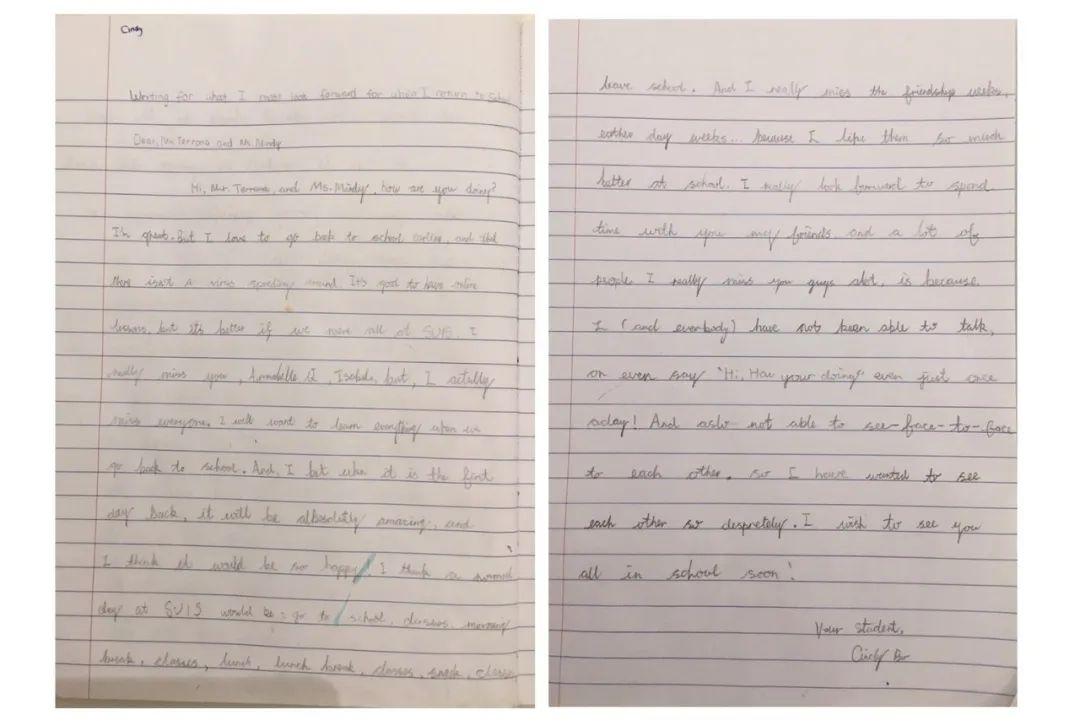 Cindy
Writing for what I most look forward for when I return to School
Dear, Mr. Terrana and Ms. Mindy
Hi, Mr. Terrana, and Ms. Mindy, how are you doing?
I'm great. But I love to go back to school earlier, and that
there isn't a virus spreading around. It's good to have online
lessons, but it's better if we were all at SUIS. I
really miss you, Annabelle Q, Isabela, but, I actully
miss everyone. I will want to learn everything when we
go back to school. And, I bet when it is the first
day back, it will be albsolutly amazing, and
I think it would be so happy. I think a normal
day at SUIS would be: go to school, classes, morning
break, classes, lunch, lunch break, classes, snack, classes
leave school. And I really miss the friendship weeks,
eother day weeks... because I like them so much
better at school. I really look forward to spend
time with you my friends and a lot of
people I really miss you guys alot, is because
I (and everbody) have not been able to talk,
or even say "Hi, How your doing" even just once
aday! And aslo not able to see-face-to-face
to each other. so I have wanted to see
each other so despretely. I wish to see you
all in school soon!
Your student,
Cindy